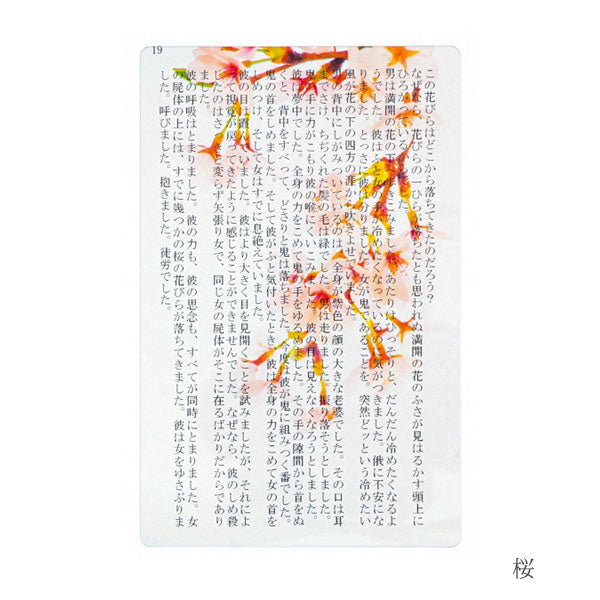 19
この花びらはどこから落ちてきたのだろう？
なぜなら、花びらの一ひらが落ちたとも思われぬ満開の花のふさが見はるかす頭上に
ひろがっているからでした。
男は満開の花の下へ歩きこみました。あたりはひっそりと、だんだん冷めたくなるよ
うでした。彼はふと女の手が冷めたくなっているのに気がつきました。俄に不安にな
りました。とっさに彼は分りました。女が鬼であることを。突然どッという冷めたい
風が花の下の四方の涯から吹きよせていました。
男の背中にしがみついているのは、全身が紫色の顔の大きな老婆でした。その口は耳
までさけ、ちぢくれた髪の毛は緑でした。男は走りました。振り落そうとしました。
鬼の手に力がこもり彼の喉にくいこみました。彼の目は見えなくなろうとしました。
彼は夢中でした。全身の力をこめて鬼の手をゆるめました。その手の隙間から首をぬ
くと、背中をすべって、どさりと鬼は落ちました。今度は彼が鬼に組みつく番でした。
鬼の首をしめました。そして彼がふと気付いたとき、彼は全身の力をこめて女の首を
しめつけ、そして女はすでに息絶えていました。
彼の目は霞んでいました。彼はより大きく目を見開くことを試みましたが、それによ
って視覚が戻ってきたように感じることができませんでした。なぜなら、彼のしめ殺
したのはさっきと変らず矢張り女で、同じ女の屍体がそこに在るばかりだからであり
ました。
彼の呼吸はとまりました。彼の力も、彼の思念も、すべてが同時にとまりました。女
の屍体の上には、すでに幾つかの桜の花びらが落ちてきました。彼は女をゆさぶりま
した。呼びました。抱きました。徒労でした。
桜